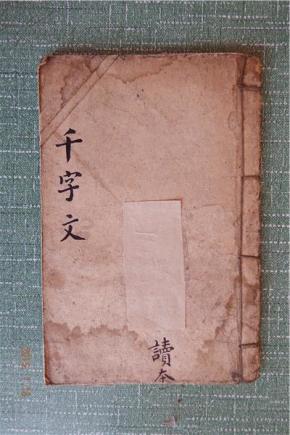 千字文
讀本